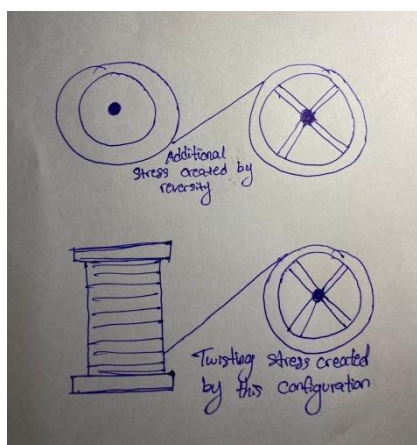 Additional
stress created by
reversity
Twisting stress created
by this configuration